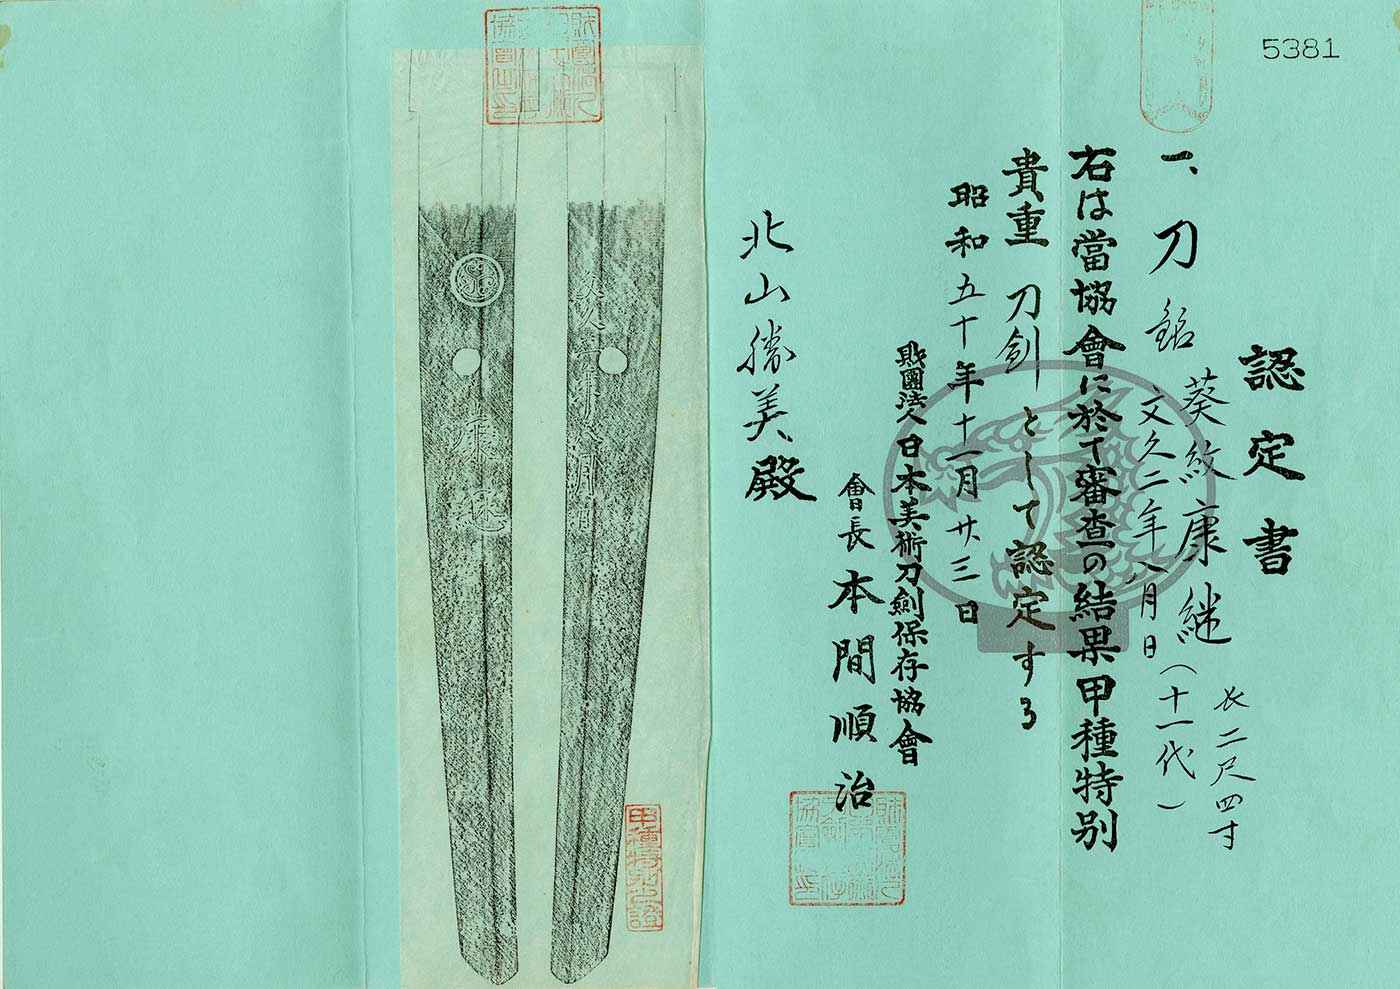 5381
認定書
一、刀 銘 葵紋康継 長二尺四寸
文久二年八月日(十一代)
右は當協會に於て審査の結果甲種特別
貴重 刀剣 として認定する
昭和五十年十一月廿三日
財團法人日本美術刀劍保存協會
會長 本間順治
北山勝美殿
康継
甲種特別公證